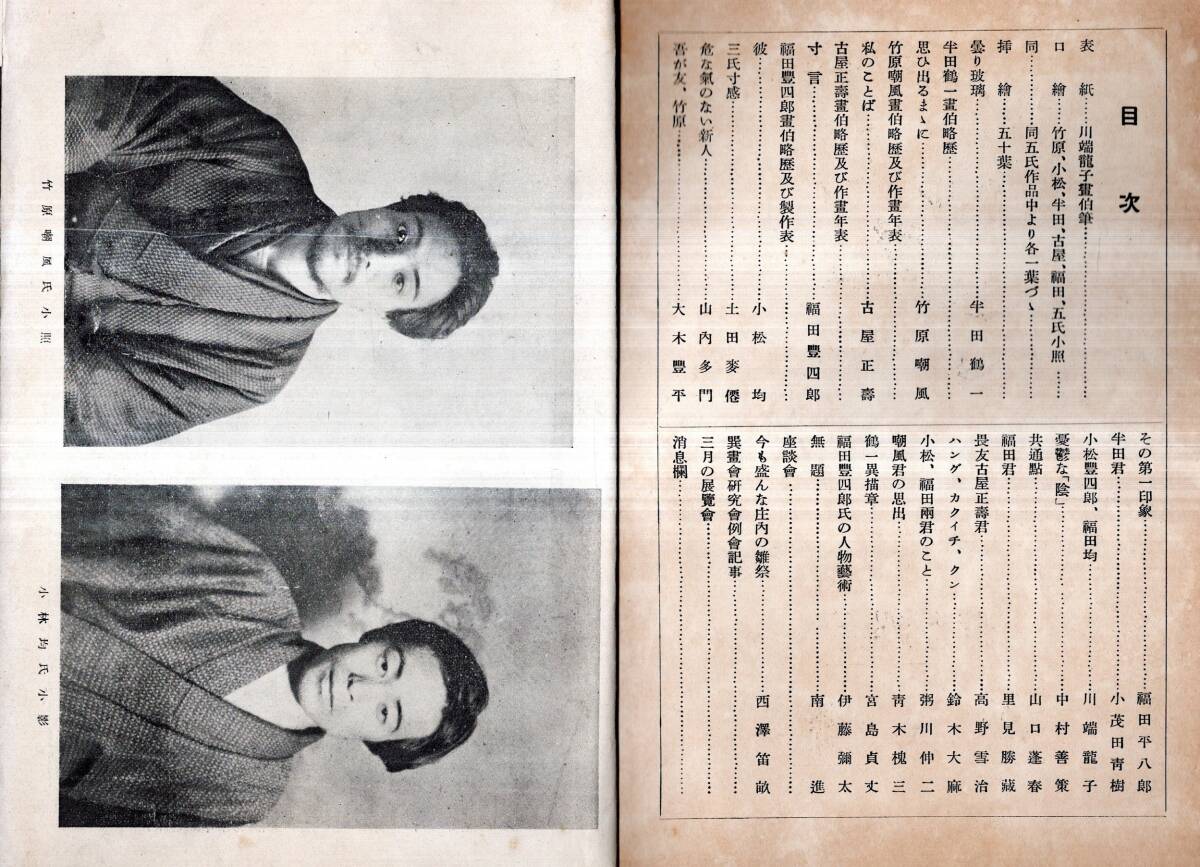 目次
表紙……川端龍子畫伯筆
口繪……竹原、小松、半田、古屋、福田、五氏小照
同……同五氏作品中より各一葉づゝ
挿繪……五十葉
曇り玻璃……半田鶴一
半田鶴一畫伯略歴
思ひ出るまゝに……竹原嘲風
竹原嘲風畫伯略歴及び作畫年表
私のことば……古屋正壽
古屋正壽畫伯略歴及び作畫年表
寸言……福田豐四郎
福田豐四郎畫伯略歴及び製作表
彼……小松均
三氏寸感……土田麥僊
危な氣のない新人……山內多門
吾が友、竹原……大木豐平
その第一印象……福田平八郎
半田君……小茂田靑樹
小松豐四郎、福田均……川端龍子
憂鬱な「陰」……中村善策
共通點……山口蓬春
福田君……里見勝藏
畏友古屋正壽君……高野雪治
ハング、カクイチ、クン……鈴木大麻
小松、福田兩君のこと……粥川伸二
嘲風君の思出……靑木槐三
鶴一異描章……宮島貞丈
福田豐四郎氏の人物藝術……伊藤彌太
無題……南進
座談會
今も盛んな庄內の雛祭……西澤笛畝
巽畫會硏究會例會記事
三月の展覽會
消息欄
竹原嘲風氏小照
小林均氏小影